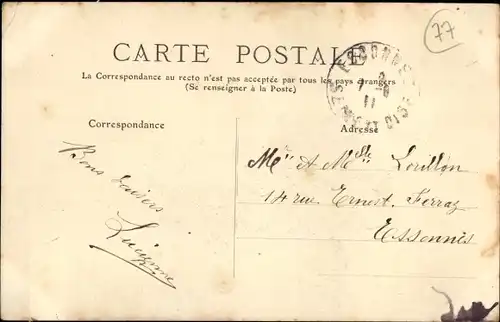 77
CARTE POSTALE
La Correspondance au recto n'est pas acceptée par tous les pays étrangers
(Se renseigner à la Poste)
Correspondance
Adresse
Bons baisers
M et Mlle Lorillon
14 rue Ernest Ferray
Essonnes